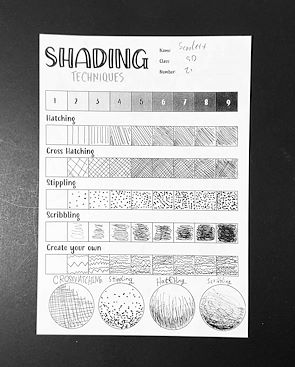 SHADING
TECHNIQUES
Name:
Class: 
Number: 2
1 2 3 4 5 6 7 8 9
Hatching
Cross Hatching
Stippling
Scribbling
Create your own
CROSSHATCHING Stippling Hatching Scribbling